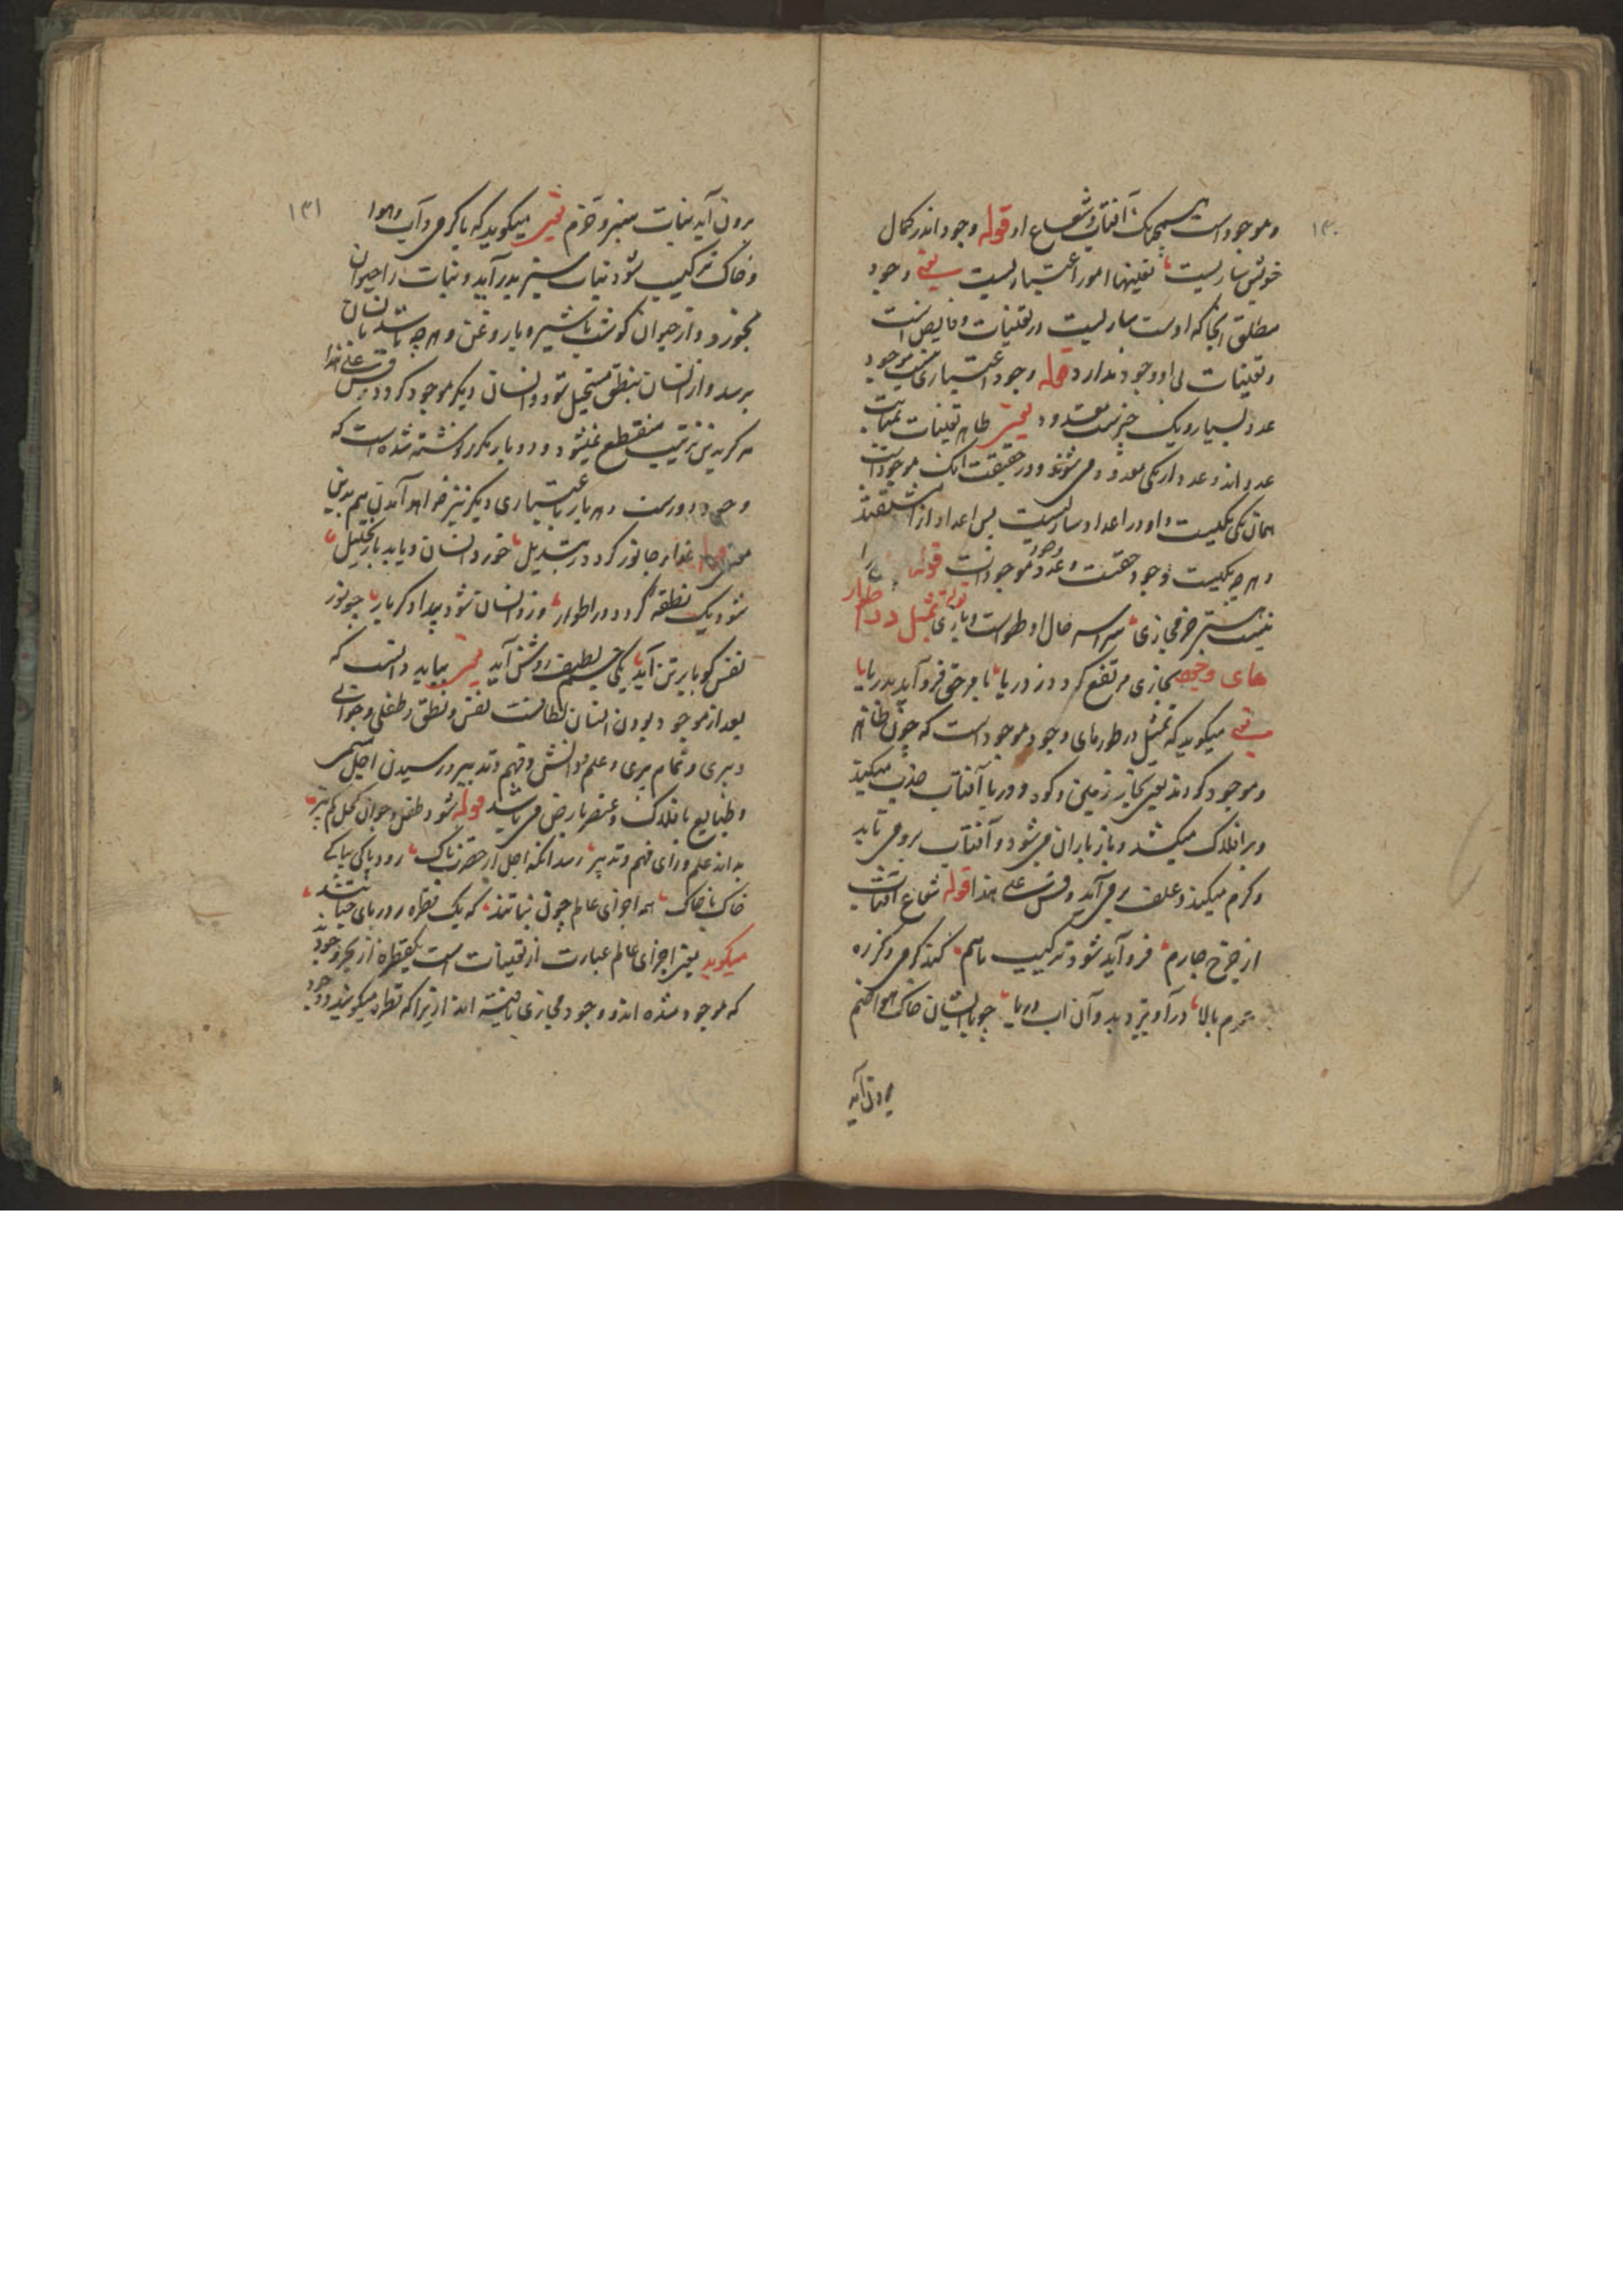 ۱۳۰
و موجود است همچنانک آفتاب و شعاع او قوله وجود اندر کمال
خویش ساریست تعینها امور اعتباریست یعنی وجود
مطلق آنجا که اوست ساریست در تعینات و فایض است
و تعینات بی او وجود ندارد قوله وجود اعتباری نیست موجود
عدد بسیار و یک چیزست معدود یعنی ظاهر تعینات
عدداند و عدد از یکی معدود می شوند و در حقیقت آنک موجود است
همان یکی یکیست و او در اعداد ساریست پس اعداد از
و هر چه یکیست وجود حقست و عدد موجودات قوله
نیست هستی جز مجازی سراسر حال او لهو است و بازی تمثیل در اطوار
های وجود بخاری مرتفع گردد ز دریا بامر حق فرو آید بدریا
یعنی میکوید که تمثیل در طورهای وجود موجود است که چون ظاهر
و موجود کردند یعنی بخار زمین و کوه و دریا آفتاب جذب میکند
و بر افلاک میکشد و باز باران می شود و آفتاب برو می تابد
و کرم میکند و علف بر می آید و قس علی هذا قوله شعاع آفتاب
از چرخ چارم فرو آید شود ترکیب باهم کند کرمی دکر ره
عزم بالا در آویزد بدو آن آب دریا چو با ایشان خاک و هوا ضم
برون آید
۱۳۱
برون آید نبات سبز و خرم یعنی میکوید که با کرمی و آب و هوا
و خاک ترکیب شود نبات سبز بدر آید و نبات را حیوان
بخورد و از حیوان کوشت یا شیر و یا روغن و هر چه باشد بانسان
برسد و از انسان بنطق مستحیل شود و انسان دیکر موجود کردد و قس علی هذا
هرکز بدین ترتیب منقطع نمیشود و دو بار مکرر نوشته شده است که
وجود دورست و هر بار باعتباری دیکر نیز خواهد آمدن هم بدین
معنی قوله غذای جانور کردد بتبدیل خورد انسان و یابد باز تحلیل
شود یک نطفه و کردد در اطوار وزو انسان شود پیدا دکر بار چو نور
نفس کویا بر تن آید یکی جسم لطیف روشن آید یعنی بباید دانست که
بعد از موجود بودن انسان لطافت نفس و نطق و طفلی و جوانی
و پیری و تمام پیری و علم و دانش و فهم و تدبیر و رسیدن اجل مسمی
و طبایع بافلاک و عنصر بارض می باشد قوله شود طفل و جوان کهل کم پیر
بداند علم و رای فهم و تدبیر رسد آنکه اجل از حضرت پاک رود پاکی بپاکی
خاک با خاک همه اجزای عالم چون نباتند که یک قطره ز دریای حیاتند
میکوید یعنی اجزای عالم عبارت از تعینات است یکقطره از بحر وجود
که موجود شده اند و وجود مجازی یافته اند از برا که قطره میکویند و وجود